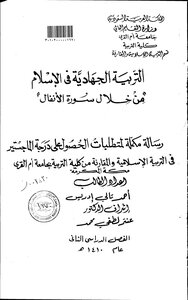 المملكة العربية السعودية
وزارة التعليم العالي
جامعة أم القرى
كلية التربية
قسم التربية الإسلامية والمقارنة
التربية الجهادية في الإسلام
"من خلال سورة الأنفال"
رسالة مكملة لمتطلبات الحصول على درجة الماجستير
في التربية الإسلامية والمقارنة من كلية التربية بجامعة أم القرى
مكة المكرمة
إعداد الطالب
أحمد تالي إدريس
إشراف الدكتور
محمد
الفصل الدراسي الثاني
عام ١٤١٠ هـ